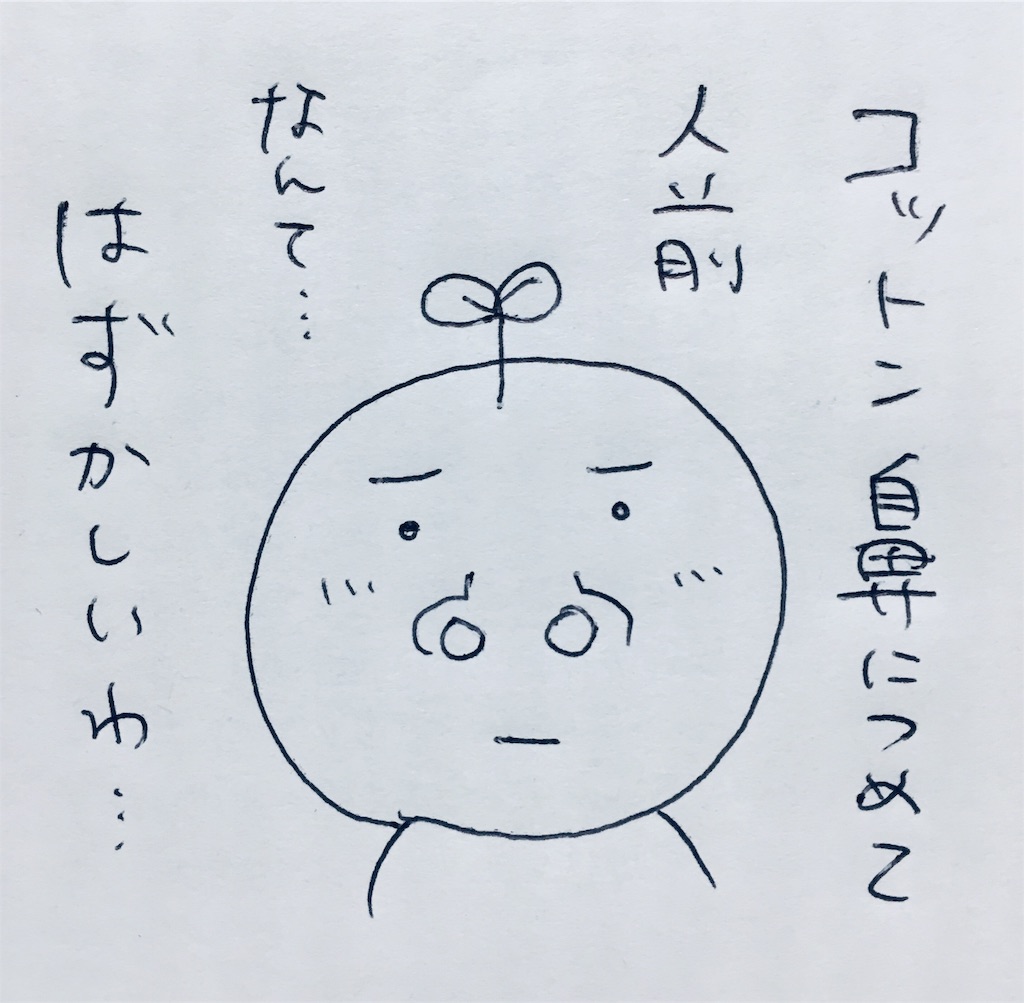 コットン鼻につめて
人前
なんて…
はずかしいわ…